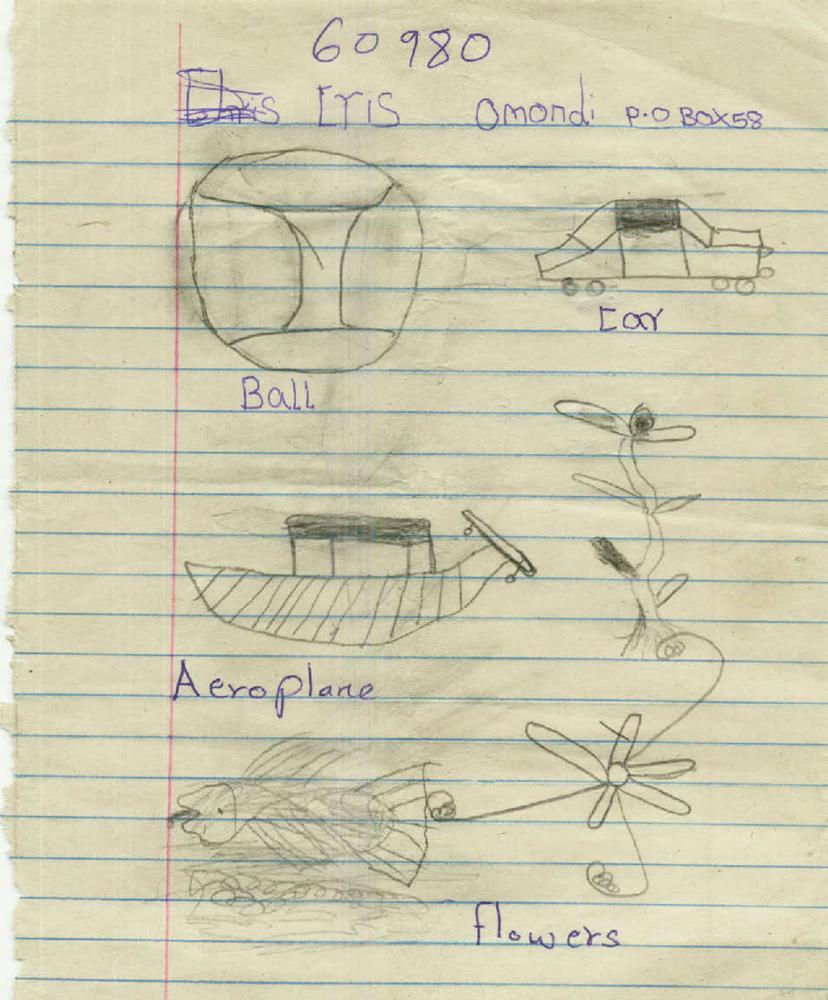 60980
Cris Omondi P.O BOX 58
Car
Ball
Aeroplane
flowers